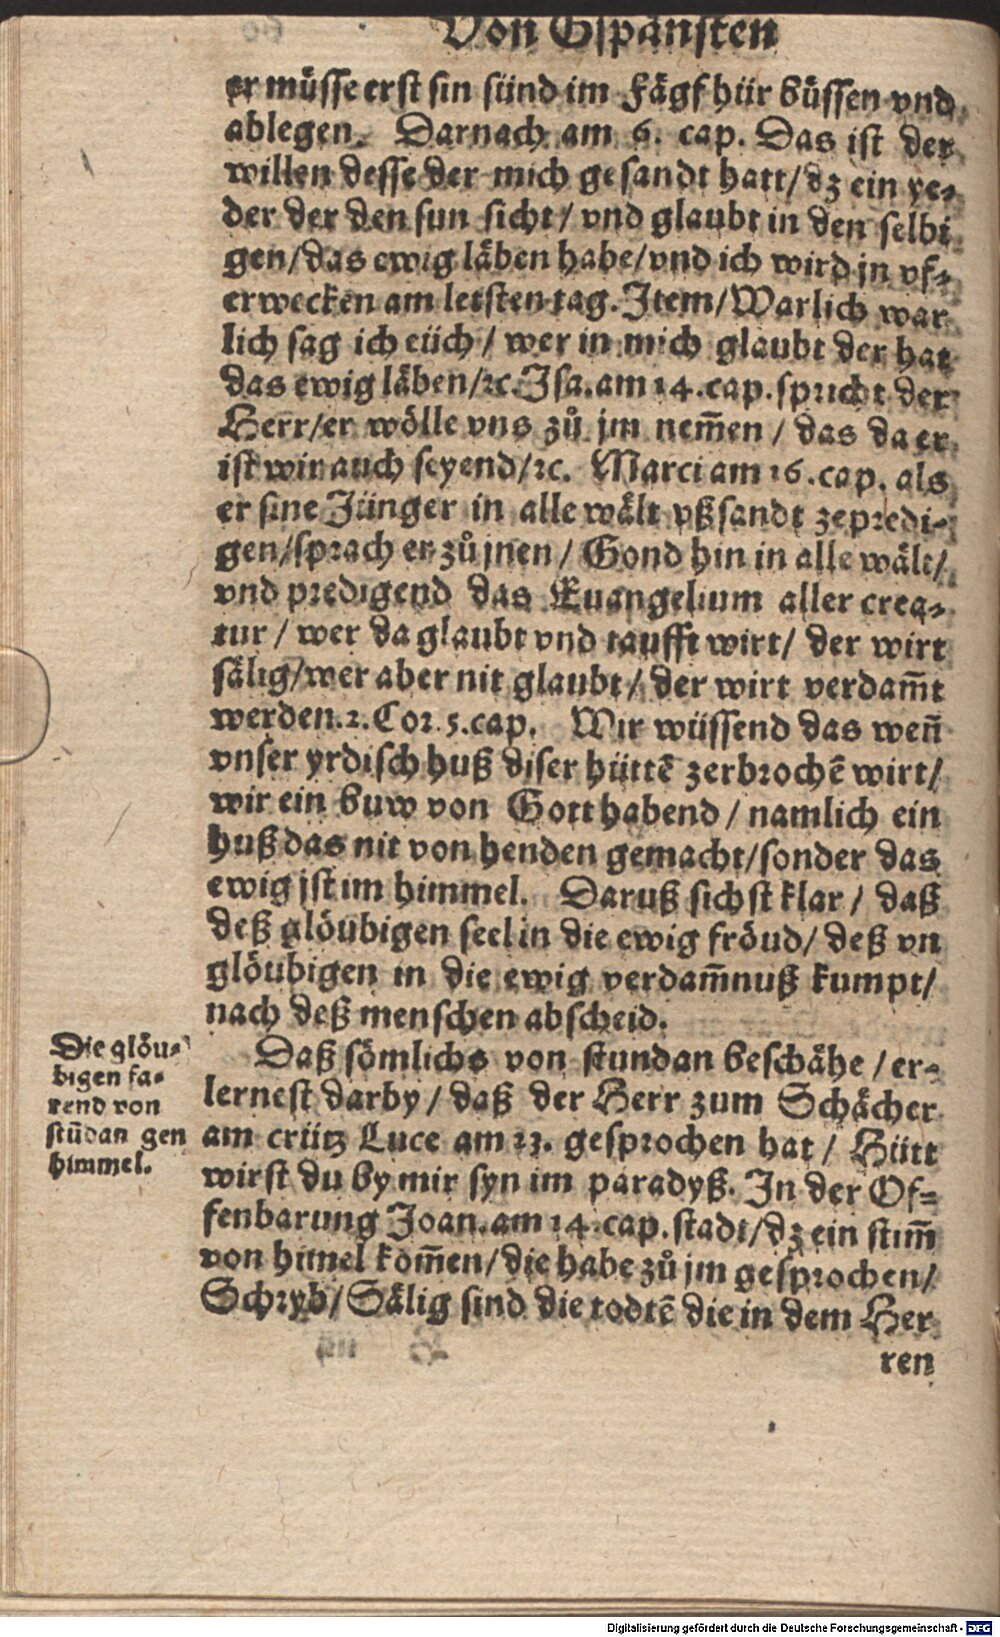 Von Gspänsten
er müsse erst sin sünd im Fägfhür büssen vnd
ablegen. Darnach am 6. cap. Das ist der
willen desse der mich gesandt hatt/ dz ein ye-
der der den sun sicht/ vnd glaubt in den selbi
gen/das ewig läben habe/vnd ich wird jn vf-
erwecken am letsten tag. Item/Warlich war
lich sag ich eüch/ wer in mich glaubt der hat
das ewig läben/ꝛc. Isa. am 14. cap. spricht der
Herr/er wölle vns zů jm nem̄en/ das da er
ist wir auch seyend/ꝛc. Marci am 16. cap. als
er sine Jünger in alle wält vßsandt zepredi-
gen/sprach er zů jnen/ Gond hin in alle wält/
vnd predigend das Euangelium aller crea-
tur/ wer da glaubt vnd taufft wirt/ der wirt
sälig/wer aber nit glaubt/ der wirt verdam̄t
werden. 2. Cor. 5. cap. Wir wüssend das wen̄
vnser yrdisch huß diser hüttē zerbrochē wirt/
wir ein buw von Gott habend/ namlich ein
huß das nit von henden gemacht/sonder das
ewig jst im himmel. Daruß sichst klar/ daß
deß glöubigen seel in die ewig fröud/ deß vn
glöubigen in die ewig verdam̄nuß kumpt/
nach deß menschen abscheid.
Daß sömlichs von stundan beschähe/ er-
lernest darby/ daß der Herr zum Schächer
am crütz Luce am 23. gesprochen hat/ Hütt
wirst du by mir syn im paradyß. In der Of-
fenbarung Joan. am 14. cap. stadt/dz ein stim̄
von himel kom̄en/die habe zů jm gesprochen/
Schryb/ Sälig sind die todtē die in dem Her
ren
Die glöu-
bigen fa-
rend von
stūdan gen
himmel.
Digitalisierung gefördert durch die Deutsche Forschungsgemeinschaft - DFG